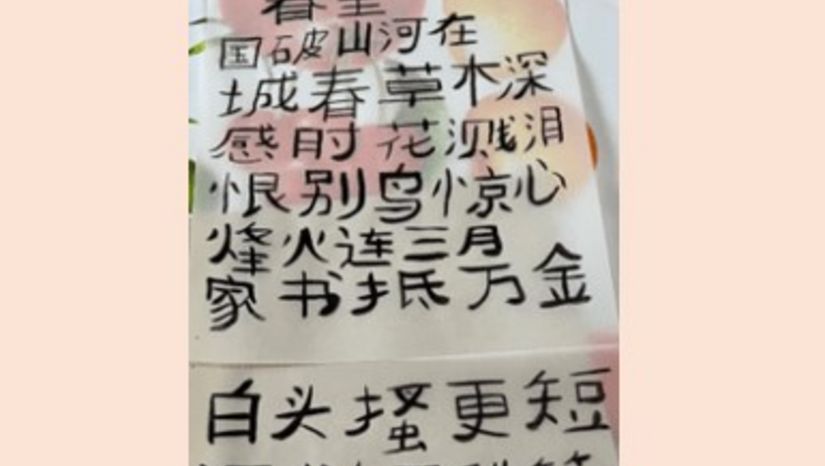 春望
国破山河在
城春草木深
感时花溅泪
恨别鸟惊心
烽火连三月
家书抵万金
白头搔更短